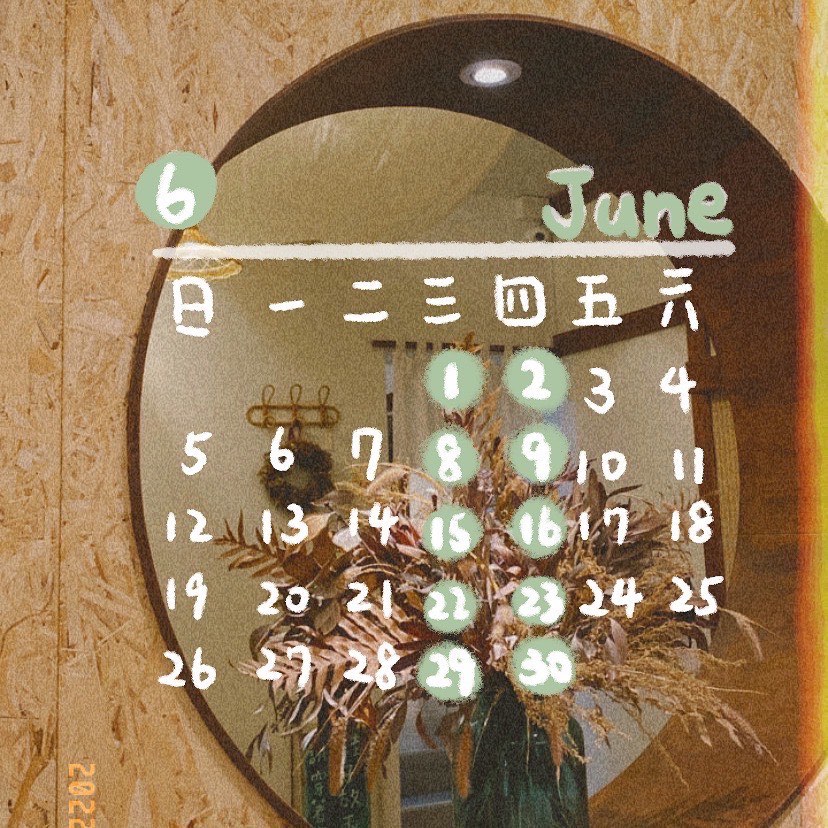 6 June
日 一 二 三 四 五 六
1 2 3 4
5 6 7 8 9 10 11
12 13 14 15 16 17 18
19 20 21 22 23 24 25
26 27 28 29 30
2022